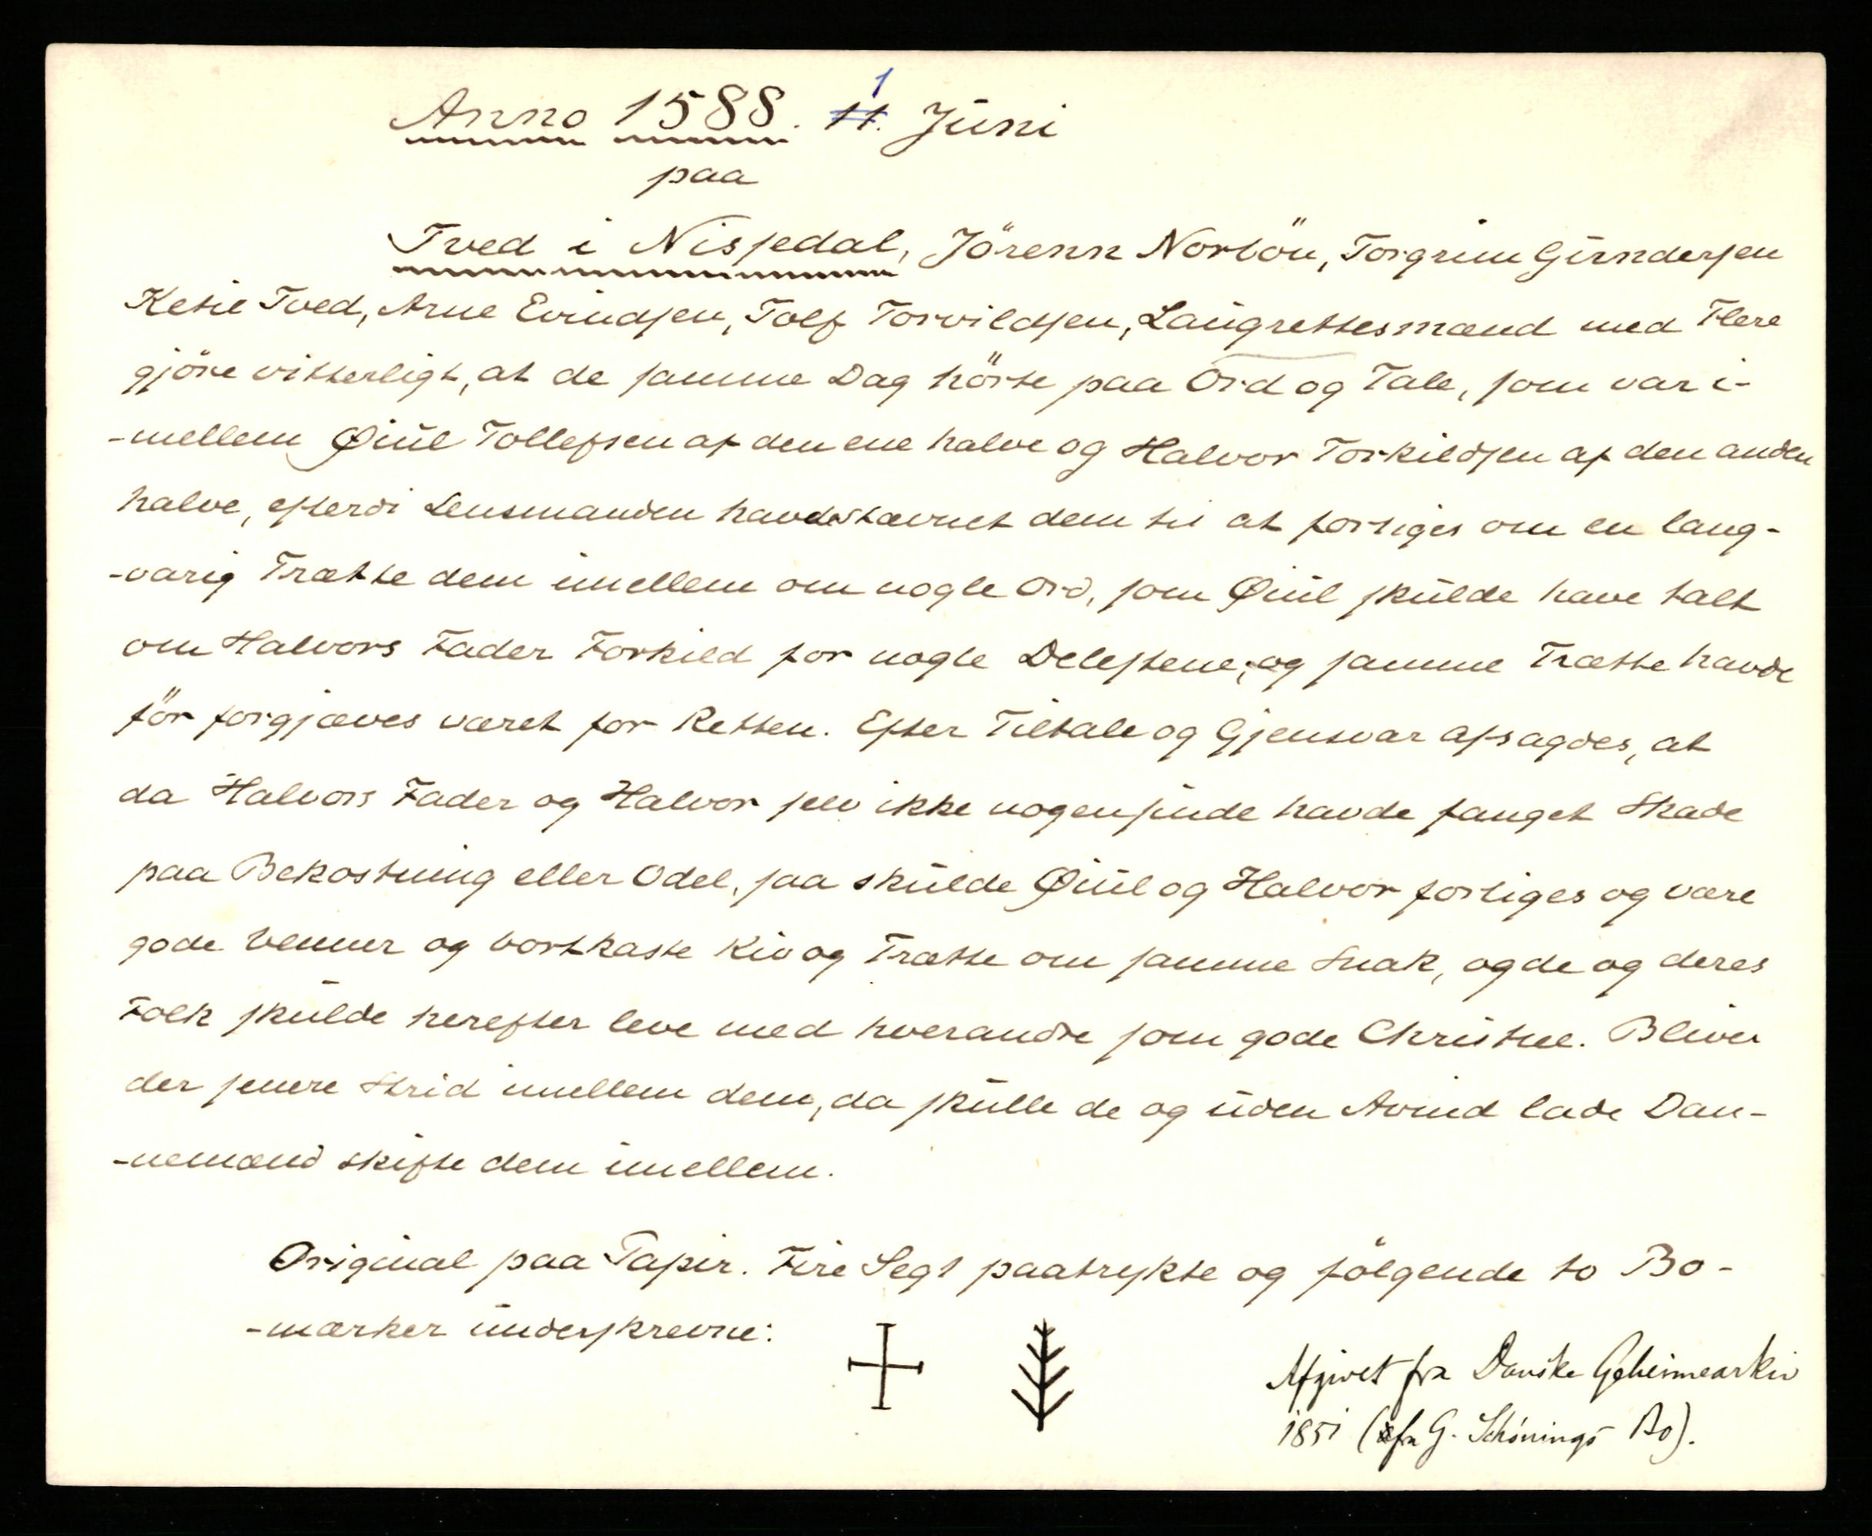 Anno 1588. 1 11. Juni
paa
Tved i Nissedal, Jörenn Norböu, Torgrim Gundersen
Ketil Tved, Arne Evindsen, Tolf Torvildsen, Laugrettesmænd med Flere
gjöre vitterligt, at de samme Dag hörte paa Ord og Tale, som var i-
-mellem Øiul Tollefsen af den ene halve og Halvor Torkildsen af den anden
halve, efterdi Lensmanden havde stævnet dem til at forliges om en lang-
-varig Trætte dem imellem om nogle Ord, som Øiul skulde have talt
om Halvors Fader Torkild for nogle Delestene, og samme Trætte havde
för forgjæves været for Retten. Efter Tiltale og Gjensvar afsagdes, at
da Halvors Fader og Halvor selv ikke nogensinde havde fanget Skade
paa Bekostning eller Odel, saa skulde Øiul og Halvor forliges og være
gode Venner og bortkaste Kiv og Trætte om samme Snak, og de og deres
Folk skulde herefter leve med hverandre som gode Christne. Bliver
der senere Strid imellem dem, da skulle de og uden Avind lade Dan-
-nemænd skifte dem imellem.
Original paa Papir. Fire Segl paatrykte og fölgende to Bo-
-mærker underskrevne:
Afgivet fra Danske Geheimearkiv
1851 (fra G. Schönings Bo).